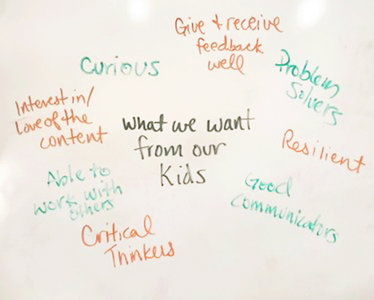 Give + receive
feedback
well
Curious
Problem
Solvers
Interest in/
Love of the
content
What we want
from our
Kids
Resilient
Able to
work with
others
Good
Communicators
Critical
Thinkers